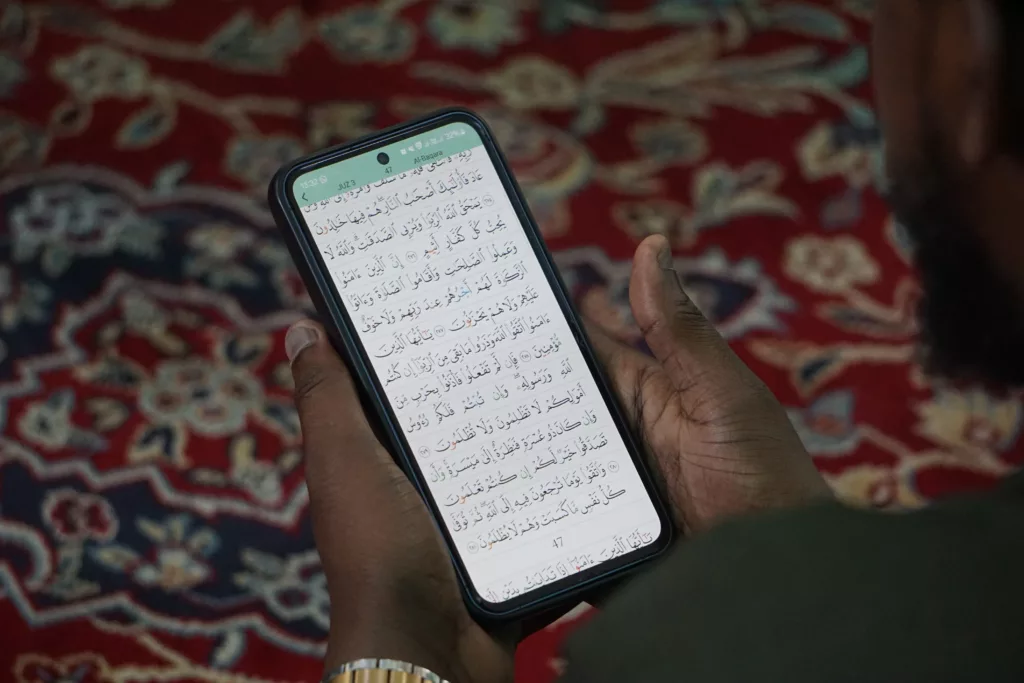 JUZ 3 47 Al-Baqara
عَادَ فَأُو۟لَٰٓئِكَ أَصْحَٰبُ ٱلنَّارِ هُمْ فِيهَا خَٰلِدُونَ
٢٧٥ يَمْحَقُ ٱللَّهُ ٱلرِّبَوٰا۟ وَيُرْبِى ٱلصَّدَقَٰتِ وَٱللَّهُ لَا
يُحِبُّ كُلَّ كَفَّارٍ أَثِيمٍ ٢٧٦ إِنَّ ٱلَّذِينَ ءَامَنُوا۟
وَعَمِلُوا۟ ٱلصَّٰلِحَٰتِ وَأَقَامُوا۟ ٱلصَّلَوٰةَ وَءَاتَوُا۟
ٱلزَّكَوٰةَ لَهُمْ أَجْرُهُمْ عِندَ رَبِّهِمْ وَلَا خَوْفٌ
عَلَيْهِمْ وَلَا هُمْ يَحْزَنُونَ ٢٧٧ يَٰٓأَيُّهَا ٱلَّذِينَ
ءَامَنُوا۟ ٱتَّقُوا۟ ٱللَّهَ وَذَرُوا۟ مَا بَقِىَ مِنَ ٱلرِّبَوٰٓا۟ إِن كُنتُم
مُّؤْمِنِينَ ٢٧٨ فَإِن لَّمْ تَفْعَلُوا۟ فَأْذَنُوا۟ بِحَرْبٍ مِّنَ
ٱللَّهِ وَرَسُولِهِۦ وَإِن تُبْتُمْ فَلَكُمْ رُءُوسُ
أَمْوَٰلِكُمْ لَا تَظْلِمُونَ وَلَا تُظْلَمُونَ ٢٧٩
وَإِن كَانَ ذُو عُسْرَةٍ فَنَظِرَةٌ إِلَىٰ مَيْسَرَةٍ وَأَن
تَصَدَّقُوا۟ خَيْرٌ لَّكُمْ إِن كُنتُمْ تَعْلَمُونَ
٢٨٠ وَٱتَّقُوا۟ يَوْمًا تُرْجَعُونَ فِيهِ إِلَى ٱللَّهِ ثُمَّ تُوَفَّىٰ
كُلُّ نَفْسٍ مَّا كَسَبَتْ وَهُمْ لَا يُظْلَمُونَ ٢٨١
47
يَٰٓأَيُّهَا ٱلَّذِينَ ءَامَنُوٓا۟ إِذَا تَدَايَنتُم بِدَيْنٍ